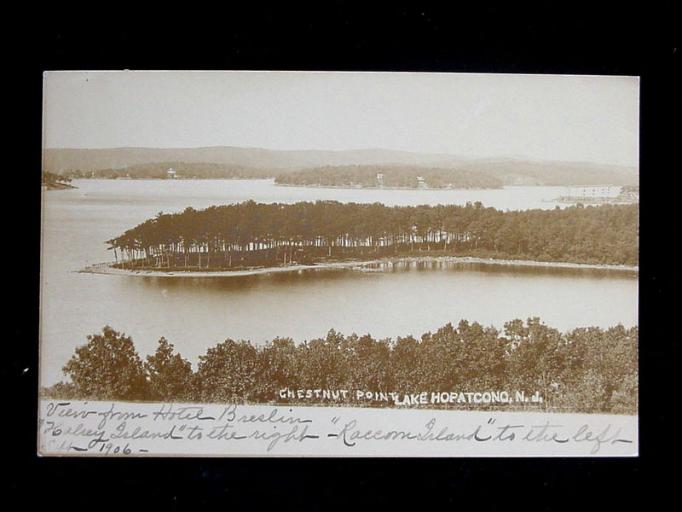 CHESTNUT POINT LAKE HOPATCONG, N. J.
View from Hotel Breslin
"Halsey Island" to the right - "Raccoon Island" to the left
1906 -